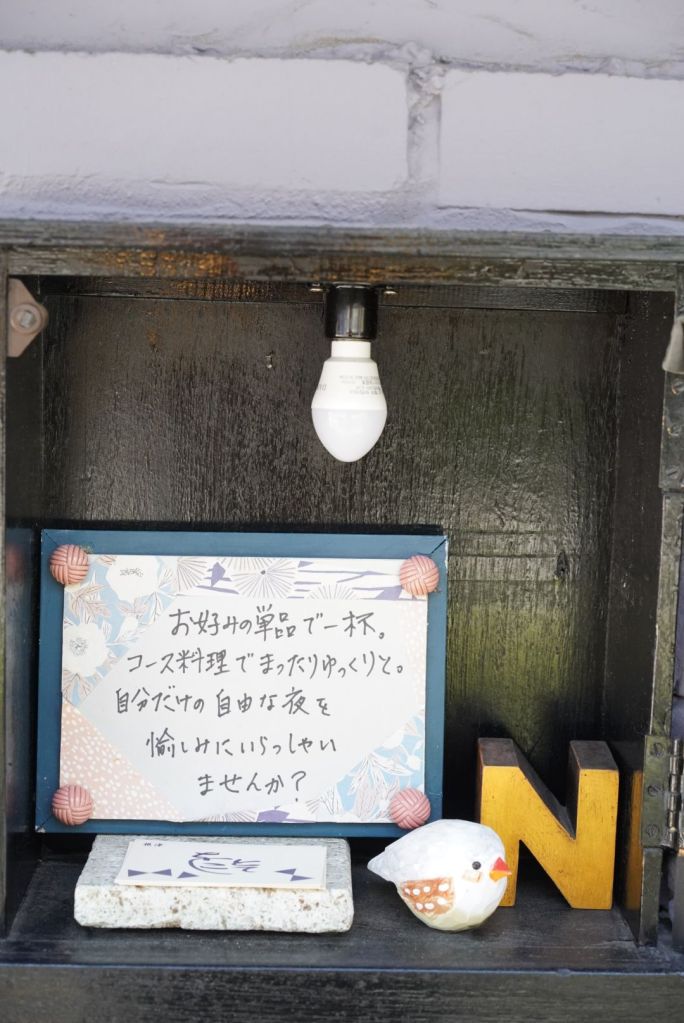 お好みの単品で一杯。
コース料理でまったりゆっくりと。
自分だけの自由な夜を
愉しみにいらっしゃい
ませんか?
根津
N